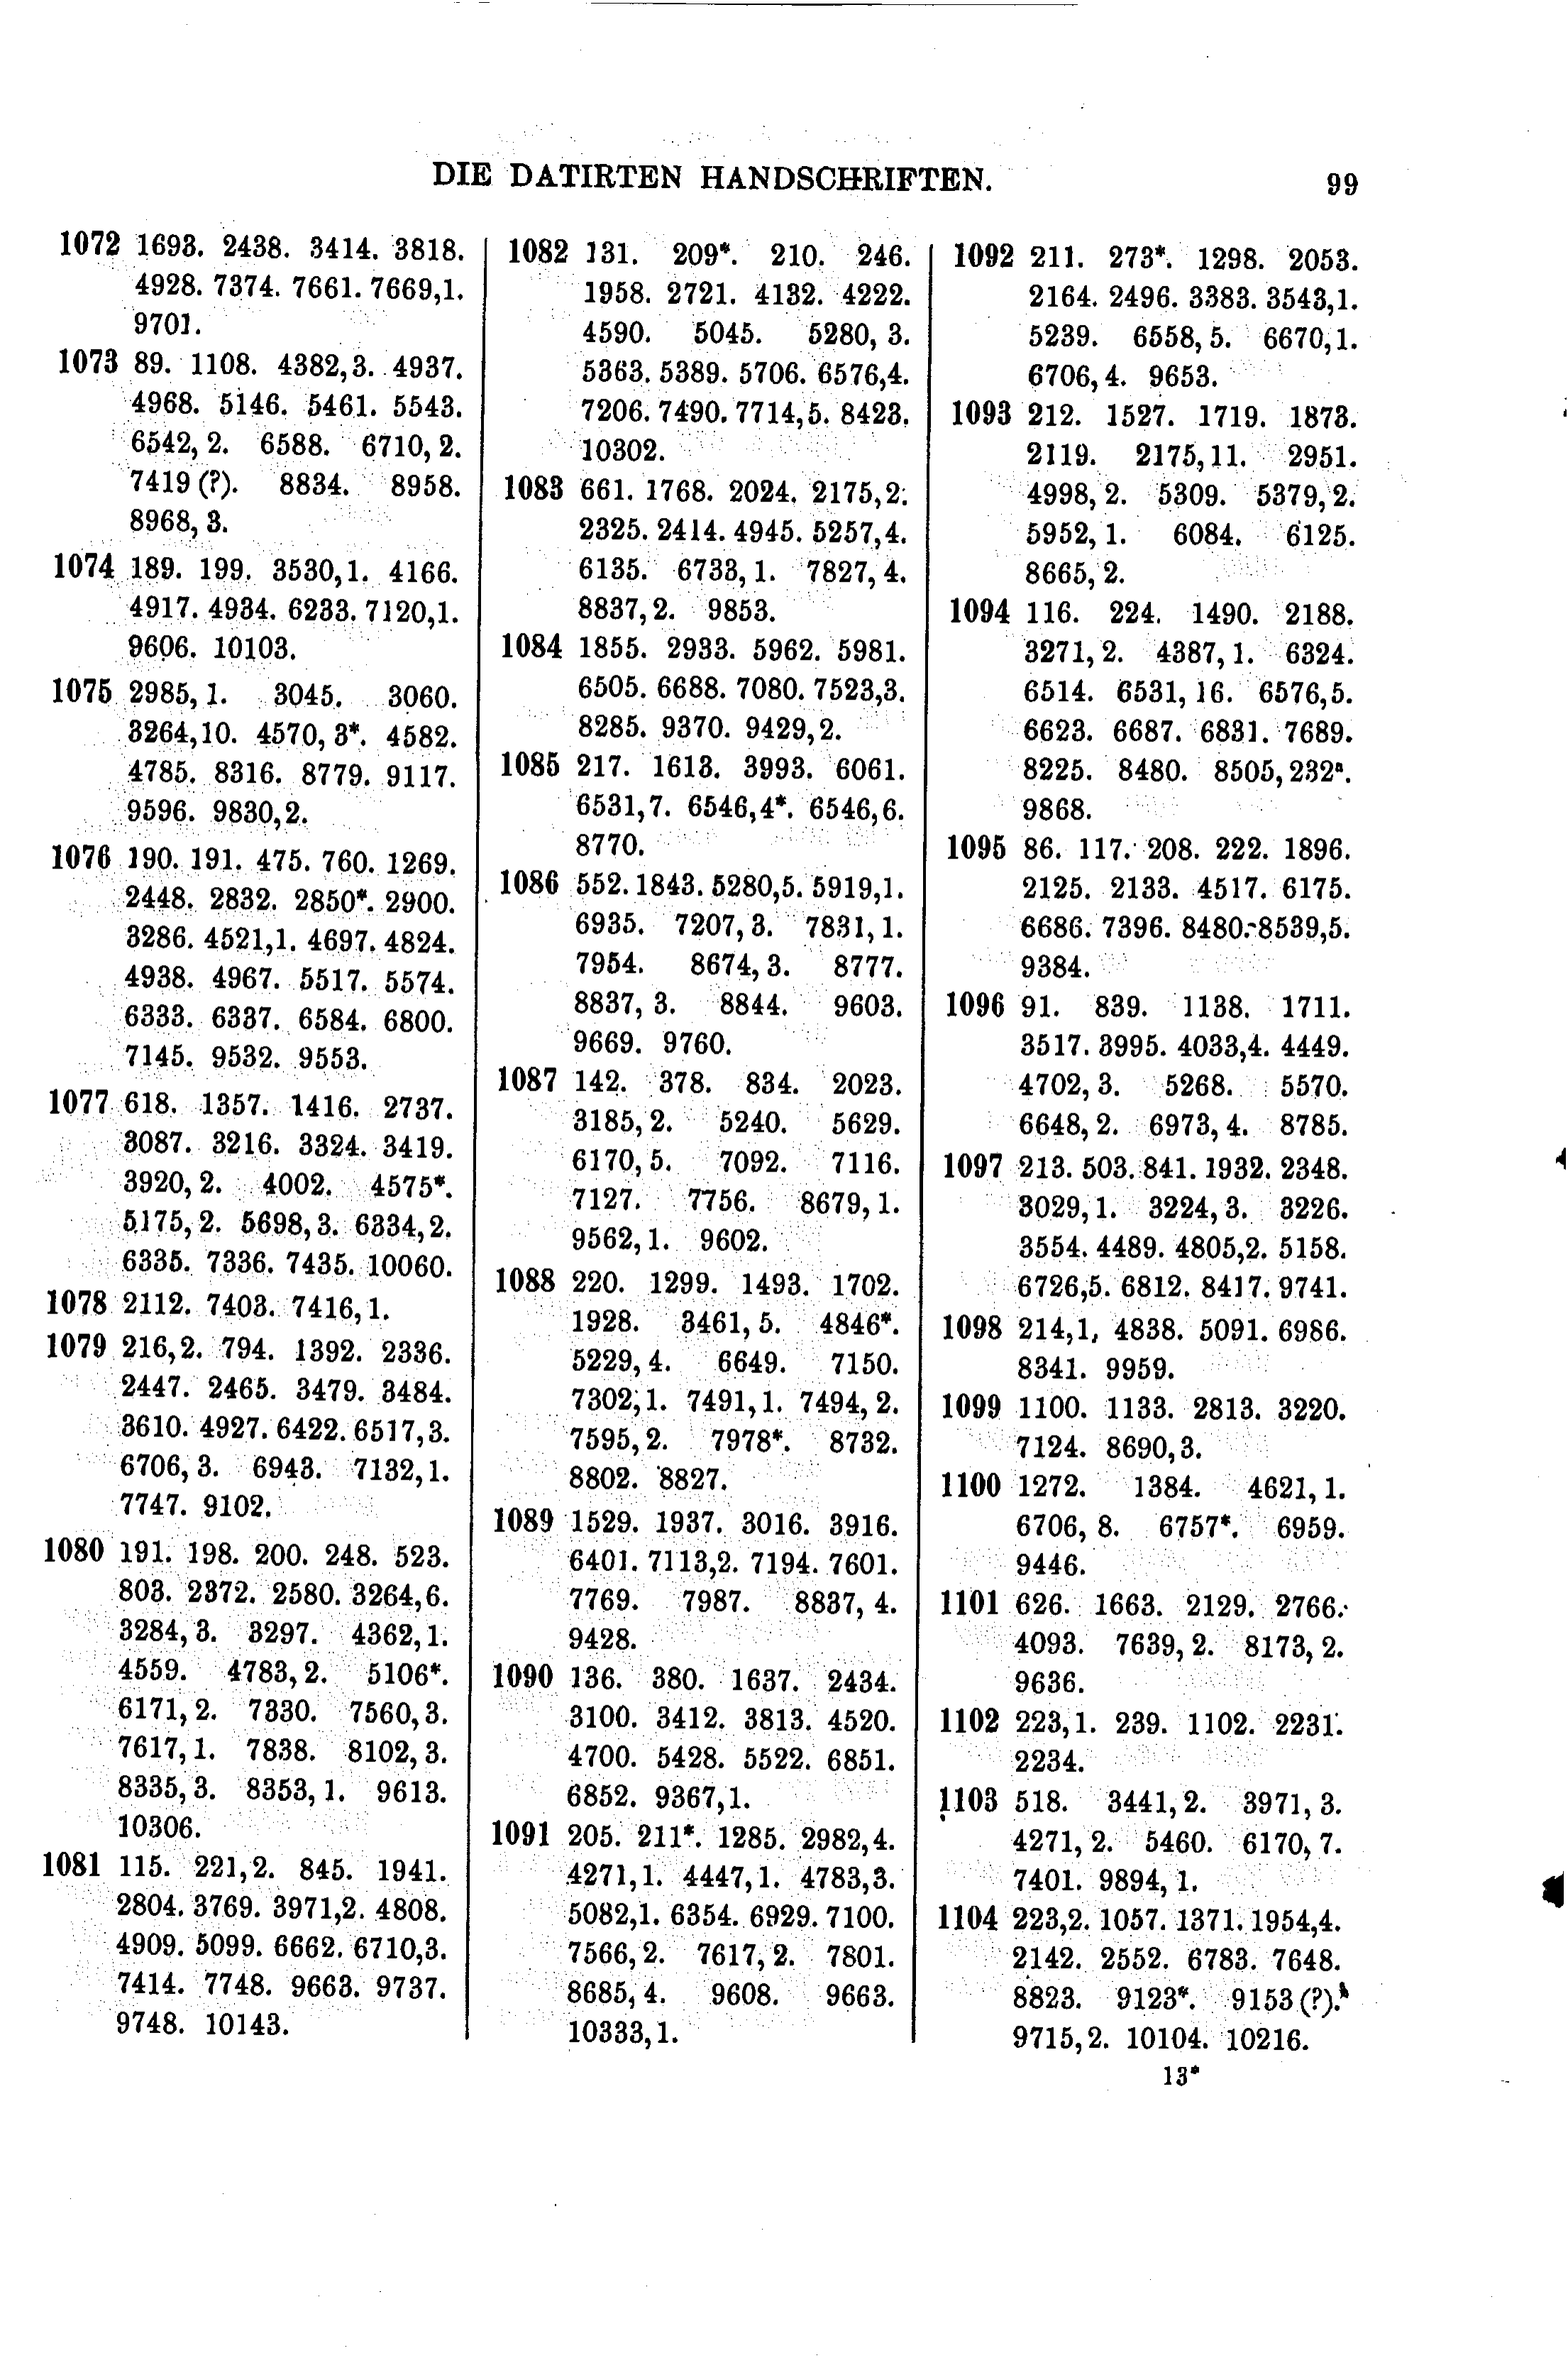 DIE DATIRTEN HANDSCHRIFTEN.
99
1072 1693. 2438. 3414. 3818.
4928. 7374. 7661. 7669,1.
9701.
1073 89. 1108. 4382,3. 4937.
4968. 5146. 5461. 5543.
6542, 2. 6588. 6710, 2.
7419 (?). 8834. 8958.
8968, 3.
1074 189. 199. 3530,1. 4166.
4917. 4934. 6233. 7120,1.
9606. 10103.
1075 2985, 1. 3045. 3060.
3264,10. 4570, 3*. 4582.
4785. 8316. 8779. 9117.
9596. 9830,2.
1076 190. 191. 475. 760. 1269.
2448. 2832. 2850*. 2900.
3286. 4521,1. 4697. 4824.
4938. 4967. 5517. 5574.
6333. 6337. 6584. 6800.
7145. 9532. 9553.
1077 618. 1357. 1416. 2737.
3087. 3216. 3324. 3419.
3920, 2. 4002. 4575*.
5175, 2. 5698, 3. 6334, 2.
6335. 7336. 7435. 10060.
1078 2112. 7403. 7416, 1.
1079 216,2. 794. 1392. 2336.
2447. 2465. 3479. 3484.
3610. 4927. 6422. 6517,3.
6706, 3. 6943. 7132,1.
7747. 9102.
1080 191. 198. 200. 248. 523.
803. 2372. 2580. 3264,6.
3284, 3. 3297. 4362,1.
4559. 4783, 2. 5106*.
6171, 2. 7330. 7560, 3.
7617, 1. 7838. 8102, 3.
8335, 3. 8353, 1. 9613.
10306.
1081 115. 221,2. 845. 1941.
2804. 3769. 3971,2. 4808.
4909. 5099. 6662. 6710,3.
7414. 7748. 9663. 9737.
9748. 10143.
1082 131. 209*. 210. 246.
1958. 2721. 4132. 4222.
4590. 5045. 5280, 3.
5363. 5389. 5706. 6576,4.
7206. 7490. 7714, 5. 8423.
10302.
1083 661. 1768. 2024. 2175,2.
2325. 2414. 4945. 5257,4.
6135. 6733, 1. 7827, 4.
8837, 2. 9853.
1084 1855. 2933. 5962. 5981.
6505. 6688. 7080. 7523,3.
8285. 9370. 9429, 2.
1085 217. 1613. 3993. 6061.
6531,7. 6546,4*. 6546,6.
8770.
1086 552. 1843. 5280,5. 5919,1.
6935. 7207, 3. 7831, 1.
7954. 8674, 3. 8777.
8837, 3. 8844. 9603.
9669. 9760.
1087 142. 378. 834. 2023.
3185, 2. 5240. 5629.
6170, 5. 7092. 7116.
7127. 7756. 8679, 1.
9562, 1. 9602.
1088 220. 1299. 1493. 1702.
1928. 3461, 5. 4846*.
5229, 4. 6649. 7150.
7302, 1. 7491, 1. 7494, 2.
7595, 2. 7978*. 8732.
8802. 8827.
1089 1529. 1937. 3016. 3916.
6401. 7113,2. 7194. 7601.
7769. 7987. 8837, 4.
9428.
1090 136. 380. 1637. 2434.
3100. 3412. 3813. 4520.
4700. 5428. 5522. 6851.
6852. 9367,1.
1091 205. 211*. 1285. 2982,4.
4271,1. 4447,1. 4783,3.
5082,1. 6354. 6929. 7100.
7566, 2. 7617, 2. 7801.
8685, 4. 9608. 9663.
10333,1.
1092 211. 273*. 1298. 2053.
2164. 2496. 3383. 3543,1.
5239. 6558, 5. 6670,1.
6706, 4. 9653.
1093 212. 1527. 1719. 1873.
2119. 2175, 11. 2951.
4998, 2. 5309. 5379, 2.
5952, 1. 6084. 6125.
8665, 2.
1094 116. 224. 1490. 2188.
3271, 2. 4387, 1. 6324.
6514. 6531, 16. 6576,5.
6623. 6687. 6831. 7689.
8225. 8480. 8505, 232ª.
9868.
1095 86. 117. 208. 222. 1896.
2125. 2133. 4517. 6175.
6686. 7396. 8480. 8539,5.
9384.
1096 91. 839. 1138. 1711.
3517. 3995. 4033,4. 4449.
4702, 3. 5268. 5570.
6648, 2. 6973, 4. 8785.
1097 213. 503. 841. 1932. 2348.
3029, 1. 3224, 3. 3226.
3554. 4489. 4805,2. 5158.
6726,5. 6812. 8417. 9741.
1098 214,1, 4838. 5091. 6986.
8341. 9959.
1099 1100. 1133. 2813. 3220.
7124. 8690, 3.
1100 1272. 1384. 4621, 1.
6706, 8. 6757*. 6959.
9446.
1101 626. 1663. 2129. 2766.
4093. 7639, 2. 8173, 2.
9636.
1102 223,1. 239. 1102. 2231.
2234.
1103 518. 3441, 2. 3971, 3.
4271, 2. 5460. 6170, 7.
7401. 9894, 1.
1104 223,2. 1057. 1371. 1954,4.
2142. 2552. 6783. 7648.
8823. 9123*. 9153 (?).
9715, 2. 10104. 10216.
13*